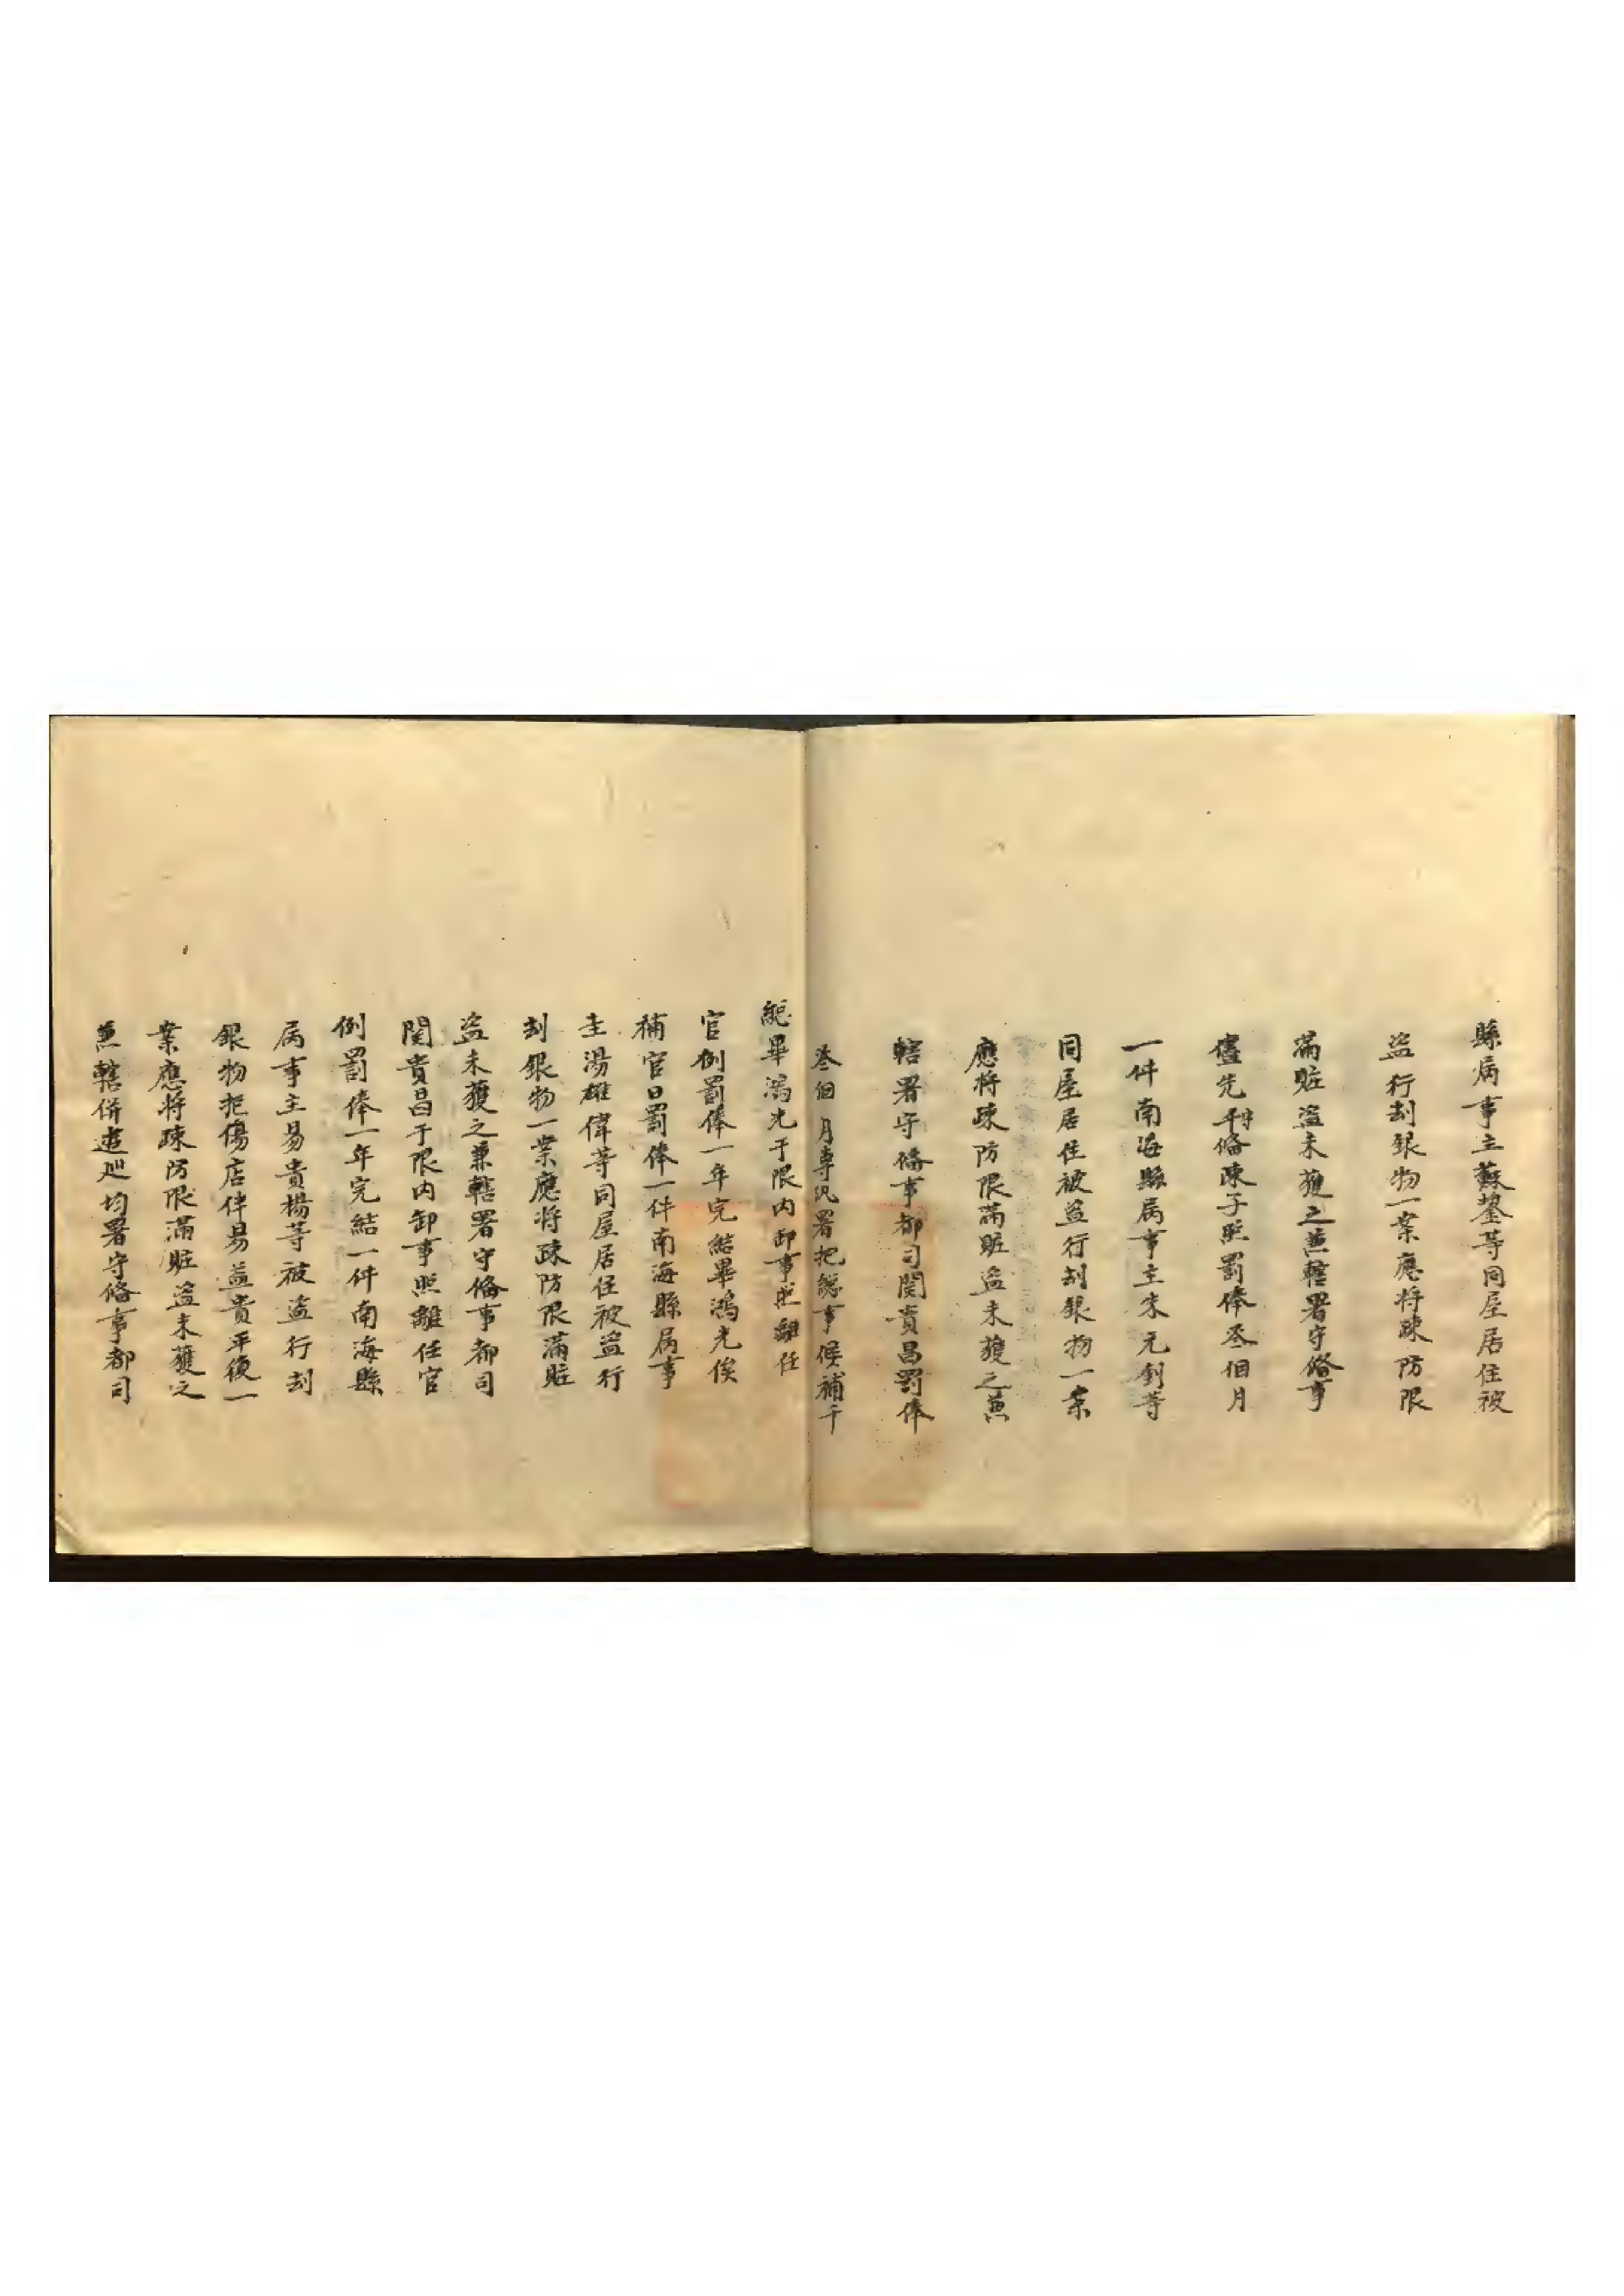 縣属事主蘇鋆等同屋居住被
盗行刦銀物一案應将疎防限
滿賍盗未獲之兼轄署守俻事
儘先守俻陳子熙罰俸叁個月
一件南海縣属事主朱元釗等
同屋居住被盗行刦銀物一案
應将疎防限滿賍盗未獲之兼
轄署守俻事都司関貴昌罰俸
叁個月専汛署把総事候補千
総畢鴻光于限内卸事照離任
官例罰俸一年完結畢鴻光俟
補官日罰俸一件南海縣属事
主湯雄偉等同屋居住被盗行
刦銀物一案應将疎防限滿賍
盗未獲之兼轄署守俻事都司
関貴昌于限内卸事照離任官
例罰俸一年完結一件南海縣
属事主易貴楊等被盗行刦
銀物拒傷店伴易益貴平復一
案應将疎防限滿賍盗未獲之
兼轄併逰廵均署守俻事都司